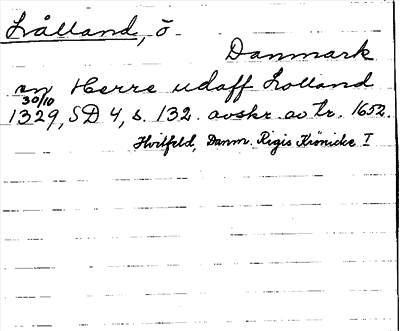 Lålland, ö
Danmark
en Herre udaff Lolland
30/10
1329, SD 4, s. 132. avskr. av tr. 1652.
Hvitfeld, Danm. Rigis Krönicke I